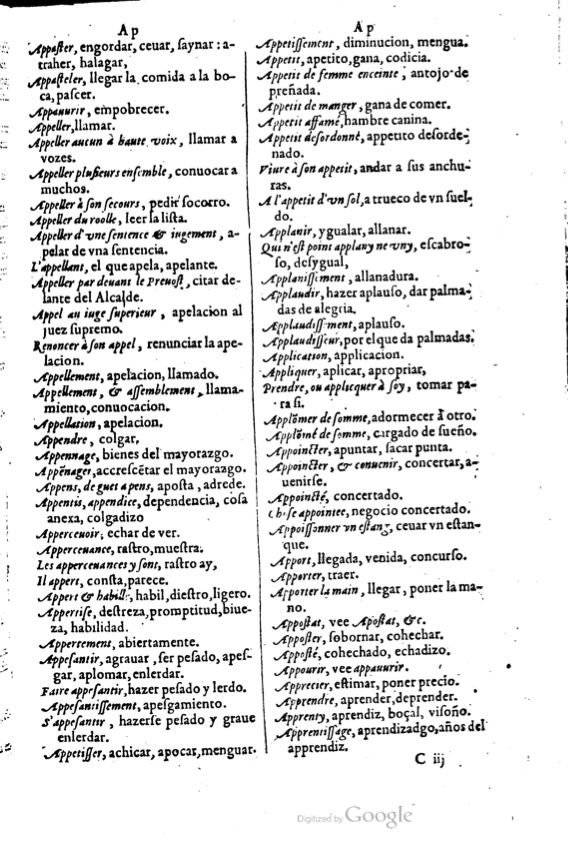 Ap
Appaſter, engordar, ceuar, ſaynar : a-
traher, halagar,
Appaſteler, llegar la comida a la bo-
ca, paſcer.
Appauurir, empobrecer.
Appeller, llamar.
Appeller aucun à haute voix, llamar a
vozes.
Appeller pluſieurs enſemble, conuocar a
muchos.
Appeller à ſon ſecours, pedir ſocorro.
Appeller du roolle, leer la liſta.
Appeller d'vne ſentence & iugement, a-
pelar de vna ſentencia.
L'appellant, el que apela, apelante.
Appeller par deuant le Preuoſt, citar de-
lante del Alcalde.
Appel au iuge ſuperieur, apelacion al
juez ſupremo.
Renoncer à ſon appel, renunciar la ape-
lacion.
Appellement, apelacion, llamado.
Appellement, & aſſemblement, llama-
miento, conuocacion.
Appellation, apelacion.
Appendre, colgar,
Appennage, bienes del mayorazgo.
Appēnager, accreſcētar el mayorazgo.
Appens, de guet apens, apoſta, adrede.
Appentis, appendice, dependencia, coſa
anexa, colgadizo
Apperceuoir; echar de ver.
Apperceuance, raſtro, mueſtra.
Les apperceuances y ſont, raſtro ay,
Il appert, conſta, parece.
Appert & habille, habil, dieſtro, ligero.
Appertiſe, deſtreza, promptitud, biue-
za, habilidad.
Appertement, abiertamente.
Appeſantir, agrauar, ſer peſado, apeſ-
gar, aplomar, enlerdar.
Faire appeſantir, hazer peſado y lerdo.
Appeſantiſſement, apeſgamiento.
S'appeſantir, hazerſe peſado y graue
enlerdar.
Appetiſſer, achicar, apocar, menguar.
Ap
Appetiſſement, diminucion, mengua.
Appetit, apetito, gana, codicia.
Appetit de femme enceinte, antojo de
preñada.
Appetit de manger, gana de comer.
Appetit affamé, hambre canina.
Appetit deſordonné, appetito deſorde-
nado.
Viure à ſon appetit, andar a ſus anchu-
ras.
A l'appetit d'vn ſol, a trueco de vn ſuel-
do.
Applanir, ygualar, allanar.
Qui n'eſt point applany ne vny, eſcabro-
ſo, deſygual,
Applaniſſiment, allanadura.
Applaudir, hazer aplauſo, dar palma-
das de alegria.
Applaudiſſment, aplauſo.
Applaudiſſeur, por el que da palmadas.
Application, applicacion.
Appliquer, aplicar, apropriar,
Prendre, ou applicquer à ſoy, tomar pa-
ra ſi.
Applōmer de ſomme, adormecer à otro.
Applōmé de ſomme, cargado de ſueño.
Appoincter, apuntar, ſacar punta.
Appoincter, & conuenir, concertar, a-
uenirſe.
Appoincté, concertado.
Choſe appointee, negocio concertado.
Appoiſſonner vn eſtang, ceuar vn eſtan-
que.
Apport, llegada, venida, concurſo.
Apporter, traer.
Apporter la main, llegar, poner la ma-
no.
Appoſtat, vee Apoſtat, &c.
Appoſter, ſobornar, cohechar.
Appoſté, cohechado, echadizo.
Appourir, vee appauurir.
Apprecier, eſtimar, poner precio.
Apprendre, aprender, deprender.
Apprenty, aprendiz, boçal, viſoño.
Apprentiſſage, aprendizadgo, años del
apprendiz.
C iij
Digitized by Google